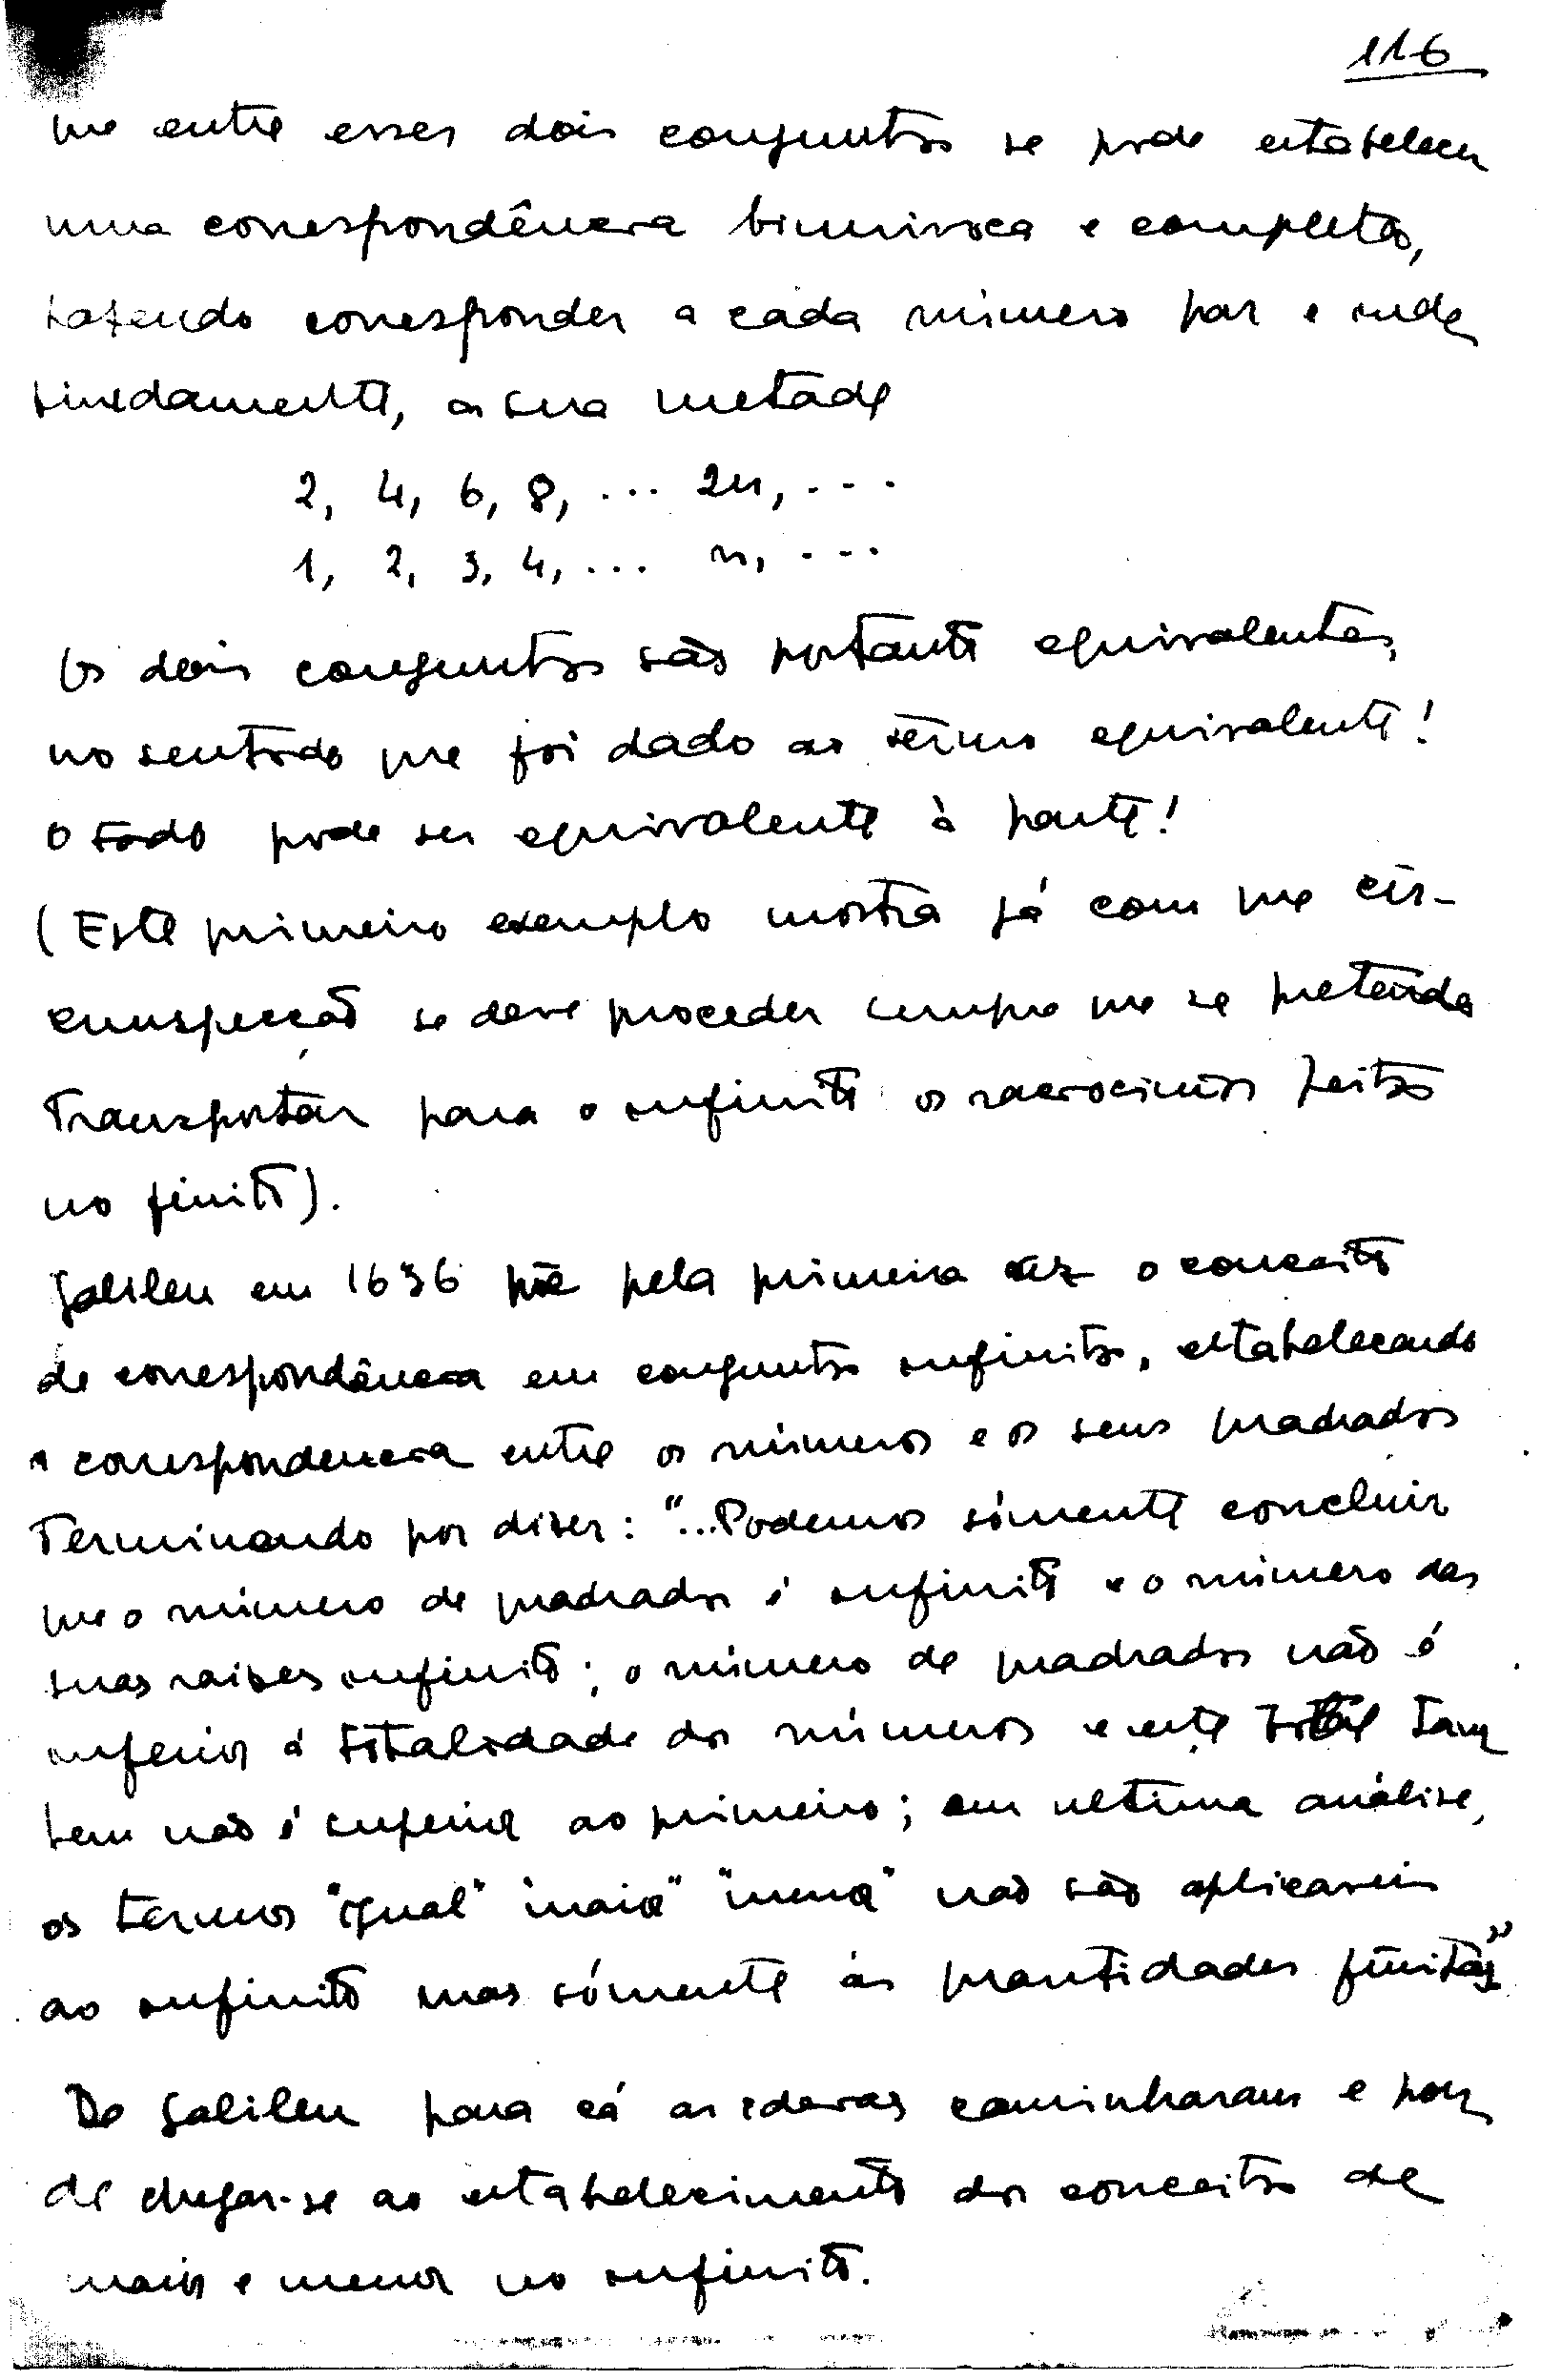 116
que entre esses dois conjuntos se pode estabelecer
uma correspondência biunívoca e completa,
fazendo corresponder a cada número par e inde
finidamente, a sua metade
2, 4, 6, 8, ... 2n, ...
1, 2, 3, 4, ... n, ...
Os dois conjuntos são portanto equivalentes,
no sentido que foi dado ao têrmo equivalente!
O todo pode ser equivalente à parte!
(Este primeiro exemplo mostra já com que cir-
cunspecção se deve proceder sempre que se pretenda
transportar para o infinito os raciocinios feitos
no finito).
Galileu em 1636 põe pela primeira vez o conceito
de correspondência em conjuntos infinitos, estabelecendo
a correspondencia entre os números e os seus quadrados
Terminando por dizer: "...Podemos sómente concluir
que o número de quadrados é infinito e o número das
suas raizes infinito; o número de quadrados não é
inferior á totalidade dos números e este total tam
bem não é superior ao primeiro; em ultima análise,
os termos "igual" "maior" "menor" não são aplicaveis
ao infinito mas sómente ás quantidades finitas"
De Galileu para cá as ideias caminharam e pou
de chegar-se ao estabelecimento dos conceitos de
maior e menor no infinito.